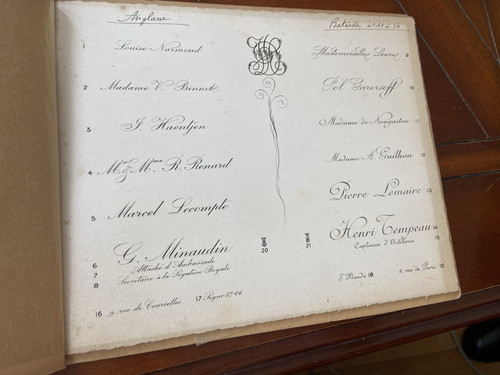 Anglaise
1 Louise Narmond
2 Madame V. Binnet
3 J. Haentjen
4 Mr & Mme R. Renard
5 Marcel Lecompte
6 G. Minaudin
7 Attaché d'Ambassade
8 Secrétaire à la Légation Royale
16 9 rue de Courcelles 17 Ségur 37-06
20
21
Bâtarde
Mademoiselle 9
Pol 10
Madame de 11
Madame A. Guilhou 12
Pierre Lemaire 13
Henri Tempeau 14
Capitaine d'Artillerie 15
18 6 rue de Paris 19